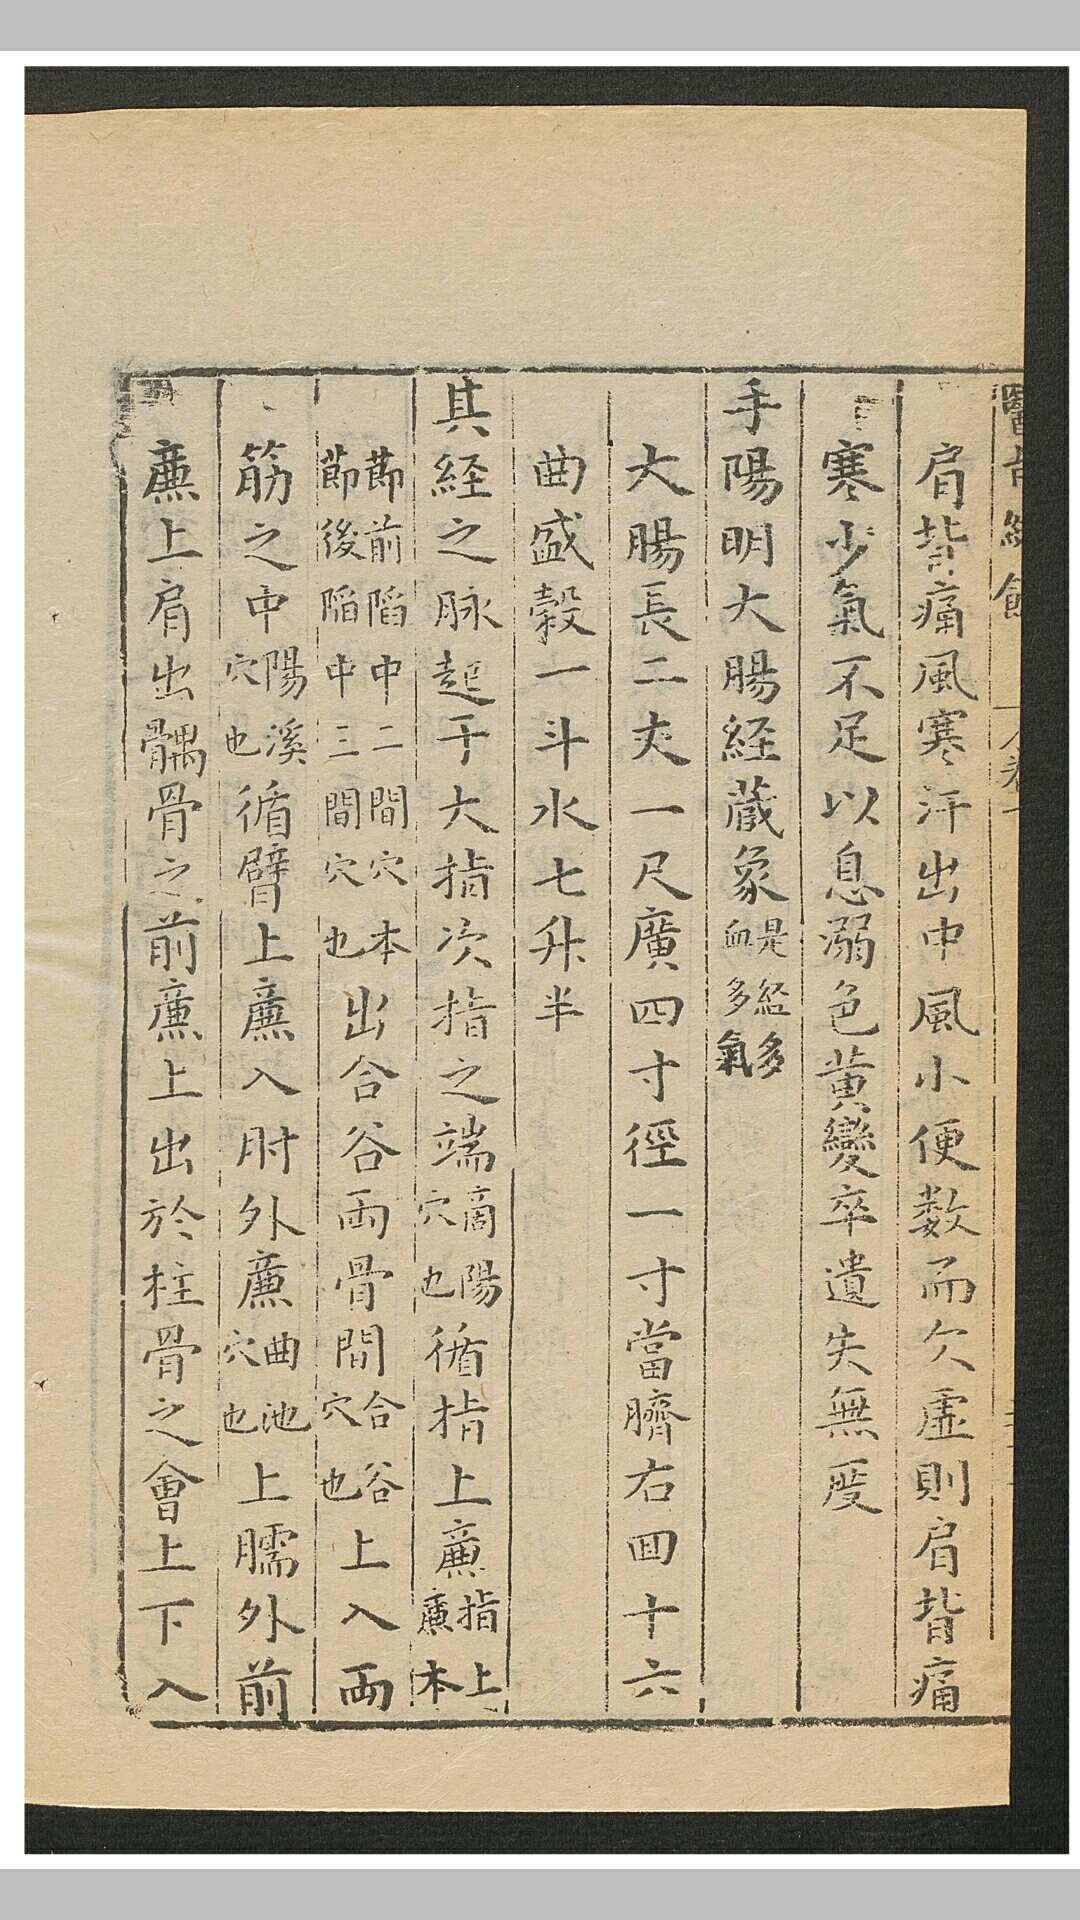 肩背痛風寒汗出中風小便数而欠虚則肩背痛
寒少氣不足以息溺色黄變卒遺失無度
手陽明大腸経蔵象是経多血多氣
大腸長二丈一尺廣四寸徑一寸當臍右囬十六
曲盛榖一斗水七升半
其経之脉起于大指次指之端商陽穴也循指上廉指上廉本
節前陷中二間穴本節後陷中三間穴也出合谷両骨間合谷穴也上入両
筋之中陽溪穴也循臂上廉入肘外廉曲池穴也上臑外前
廉上肩出髃骨之前廉上出於柱骨之會上下入